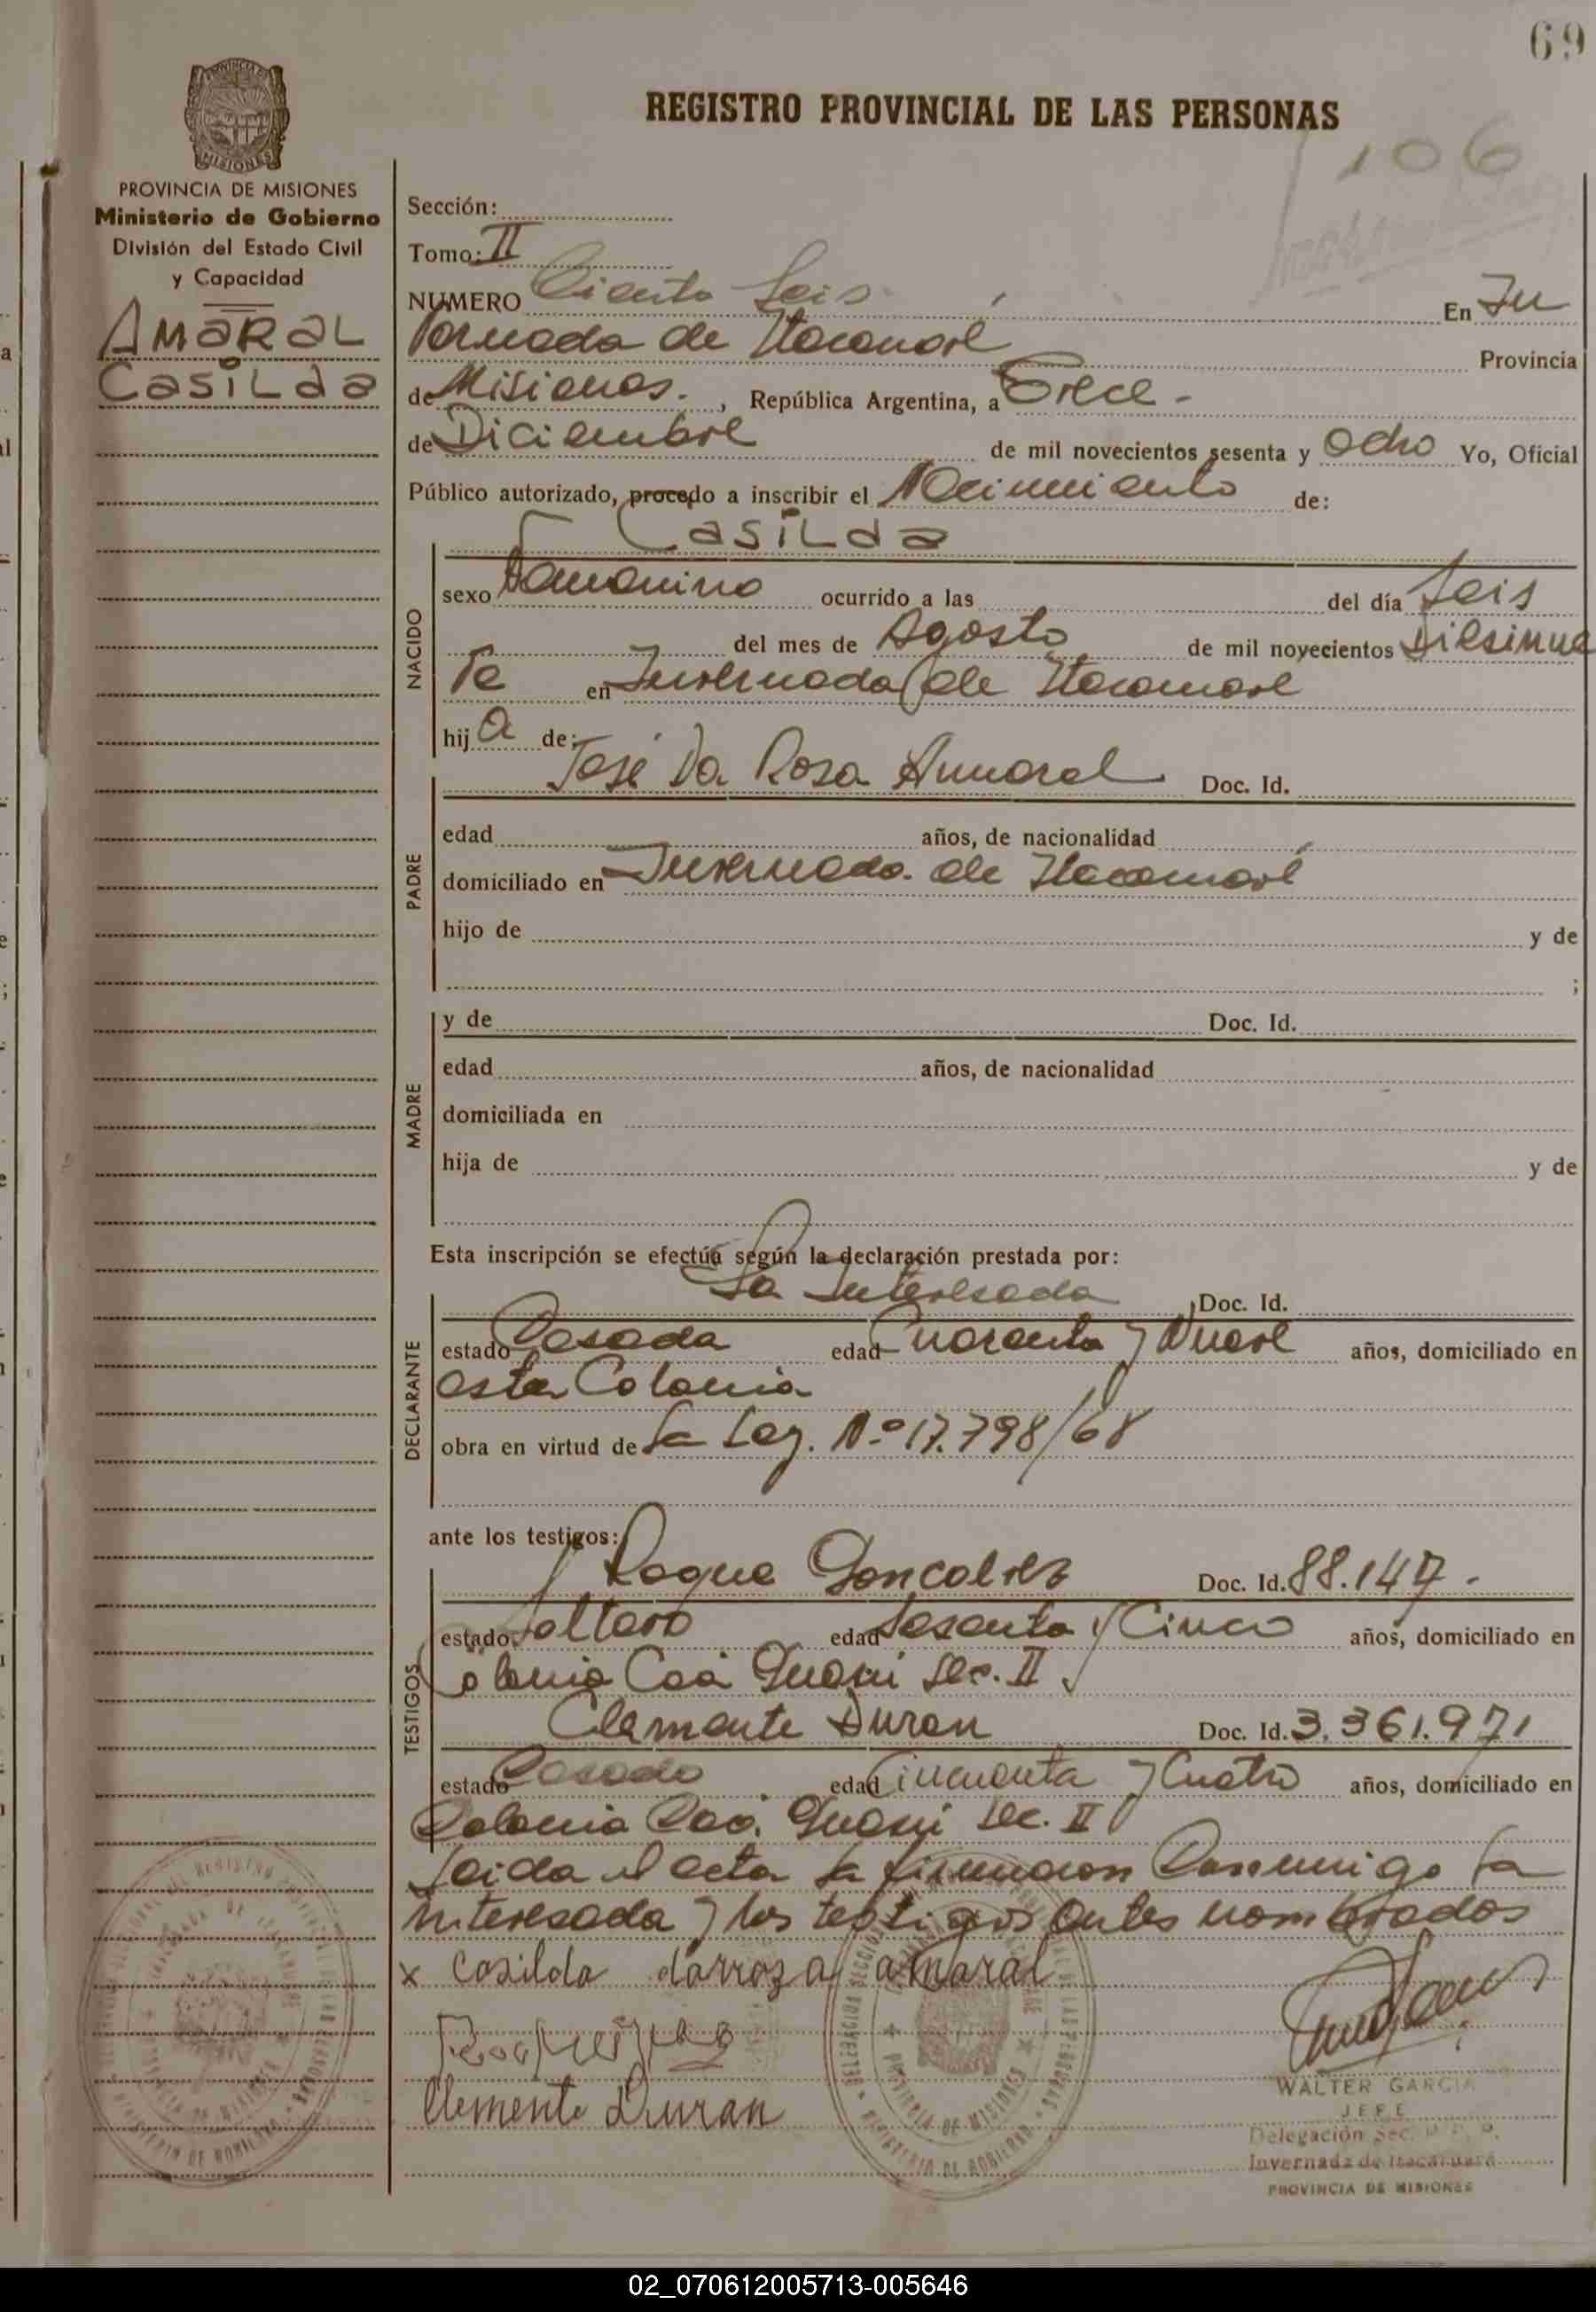 69
REGISTRO PROVINCIAL DE LAS PERSONAS
106
PROVINCIA DE MISIONES
Ministerio de Gobierno
División del Estado Civil
y Capacidad
AMARAL
CASILDA
Sección:
Tomo: II
NUMERO Ciento Seis En In
vernada de Itacaruaré Provincia
de Misiones. , República Argentina, a Trece -
de Diciembre de mil novecientos sesenta y Ocho Yo, Oficial
Público autorizado, procedo a inscribir el Nacimiento de:
CASILDA
NACIDO
sexo Femenino ocurrido a las del día Seis
del mes de Agosto de mil novecientos Diesinue
Ve en Invernada de Itacaruare
hija de:
José Da Rosa Amaral Doc. Id.
PADRE
edad años, de nacionalidad
domiciliado en Invernada de Itacaruaré
hijo de y de
;
MADRE
y de Doc. Id.
edad años, de nacionalidad
domiciliada en
hija de y de
Esta inscripción se efectúa según la declaración prestada por:
La Interesada Doc. Id.
DECLARANTE
estado Casada edad Cuarenta y Nueve años, domiciliado en
esta Colonia
obra en virtud de La Ley. Nº 17.798/68
ante los testigos:
Roque Goncalvez Doc. Id. 88.147.
TESTIGOS
estado Soltero edad Sesenta y Cinco años, domiciliado en
Colonia Caá Guasu Sec. II
Clemente Duran Doc. Id. 3.361.971
estado Casado edad Cincuenta y Cuatro años, domiciliado en
Colonia Caá Guasu Sec. II
Leida el acta la firmaron Conmigo la
interesada y los testigos antes nombrados
x Casilda darroza amaral
Clemente Duran
WALTER GARCIA
JEFE
Delegación Sec.
Invernada de Itacaruaré
PROVINCIA DE MISIONES
02_070612005713-005646